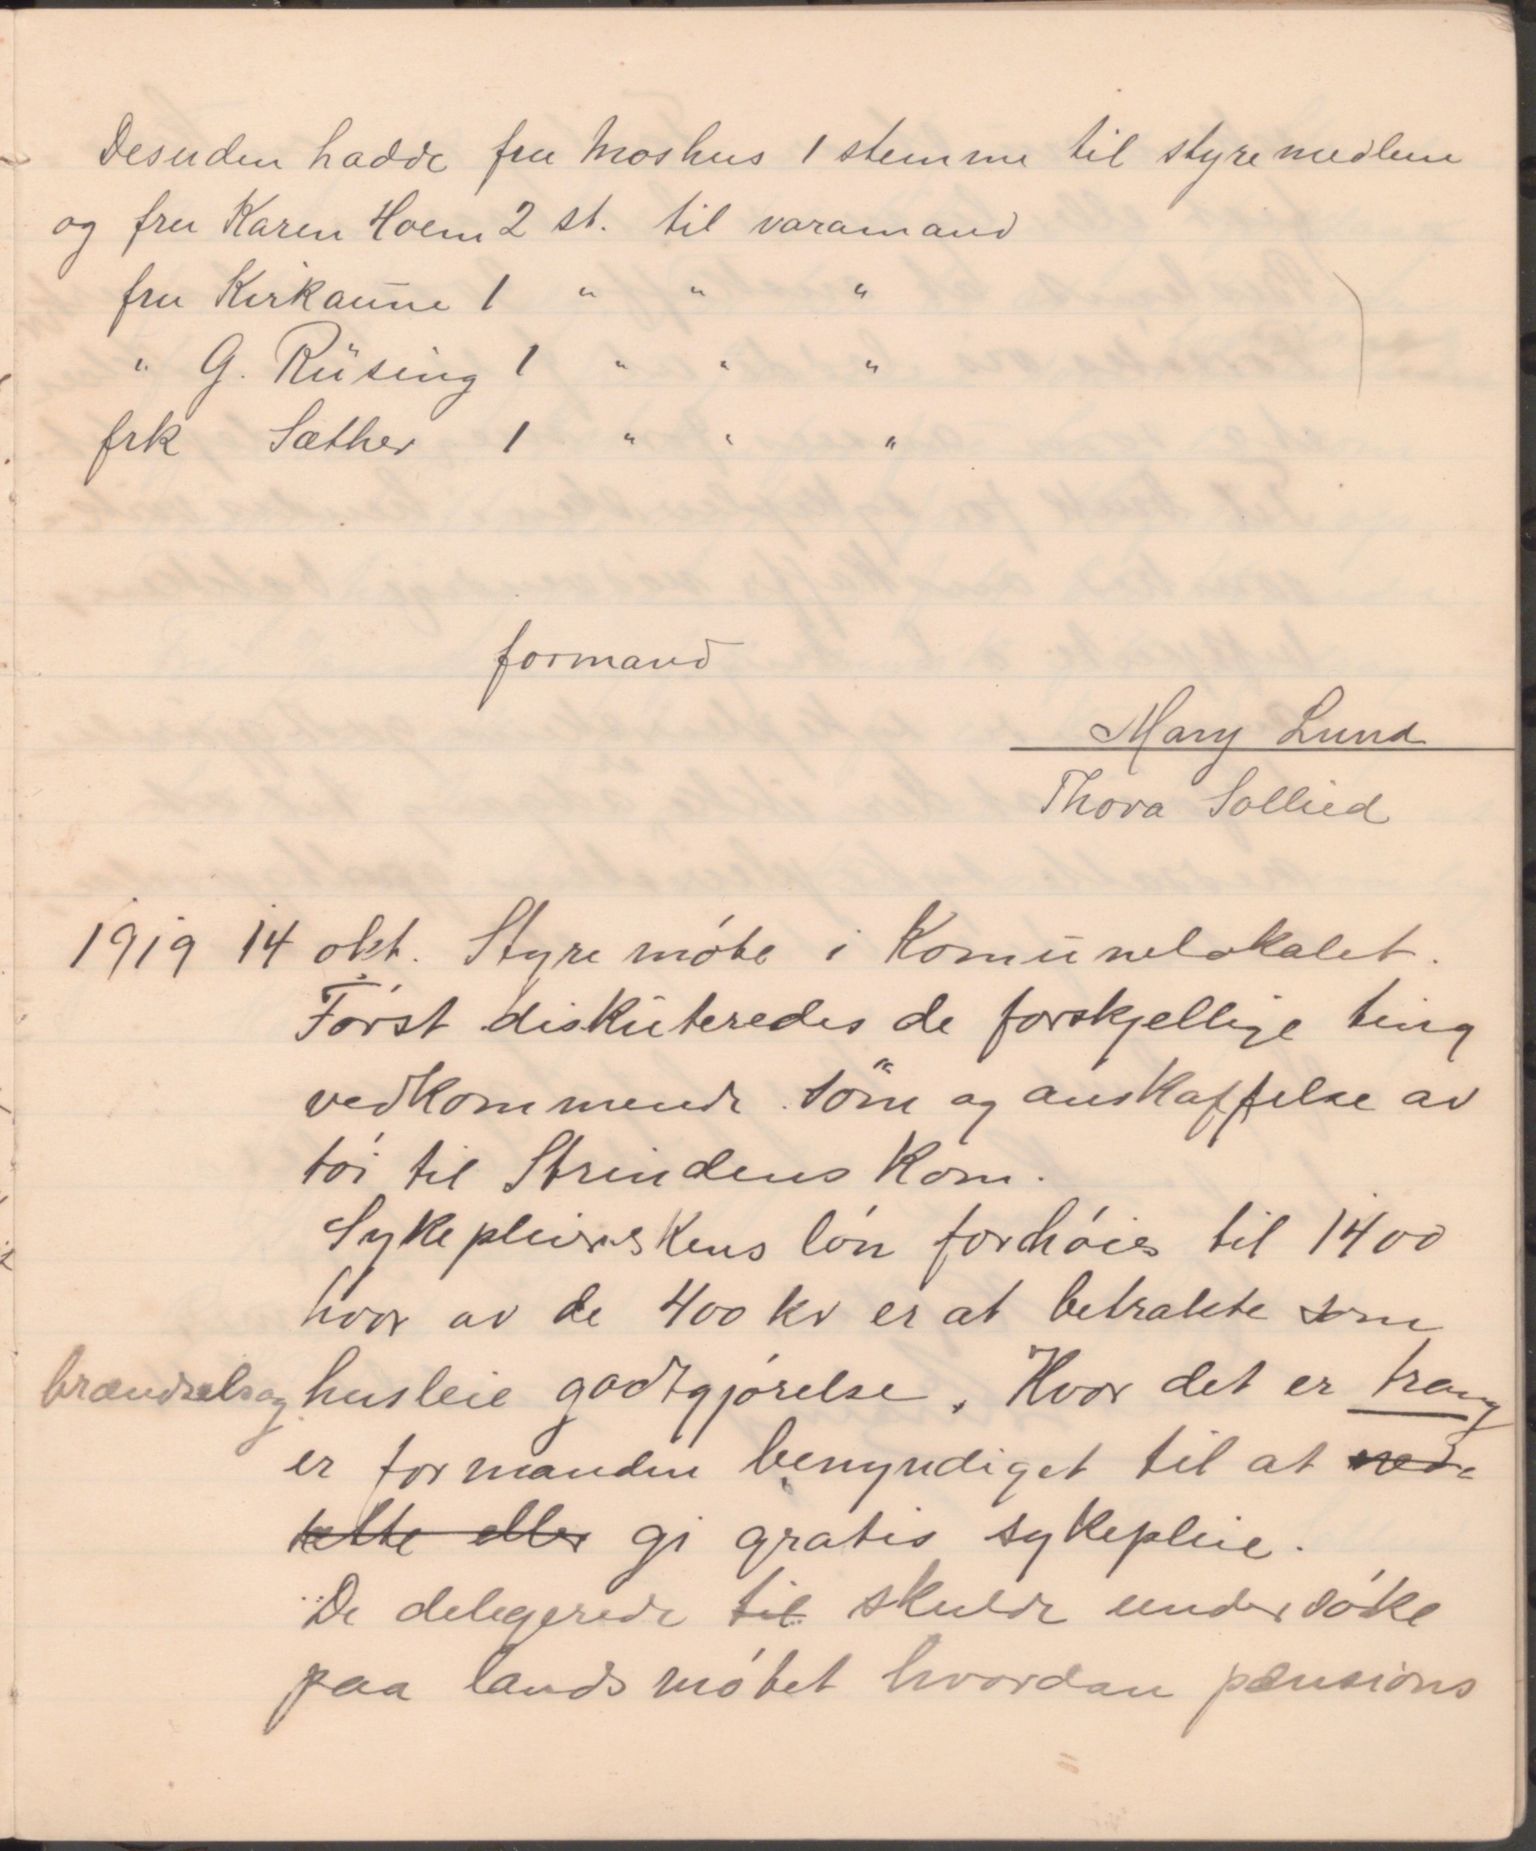 Desuden hadde fru Moshus 1 stemme til styremedlem
og fru Karen Hoem 2 st. til varamand
fru Kirkaune 1 " " "
" G. Rüsing 1 " " "
frk Sæther 1 " " "
formand
Mary Lund
Thora Sollied
1919 14 okt. Styremöte i Komunelokalet.
Först diskuteredes de forskjellige ting
vedkommende söm og anskaffelse av
töi til Strindens Kom.
Sykepleierskens lön forhöies til 1400
hvor av de 400 kr er at betrakte som
brændsels og husleie godtgjörelse. Hvor det er trang
er formanden benyndiget til at ned-
sette eller gi gratis sykepleie.
De delegerede til skulde undersöke
paa landsmötet hvordan pensions